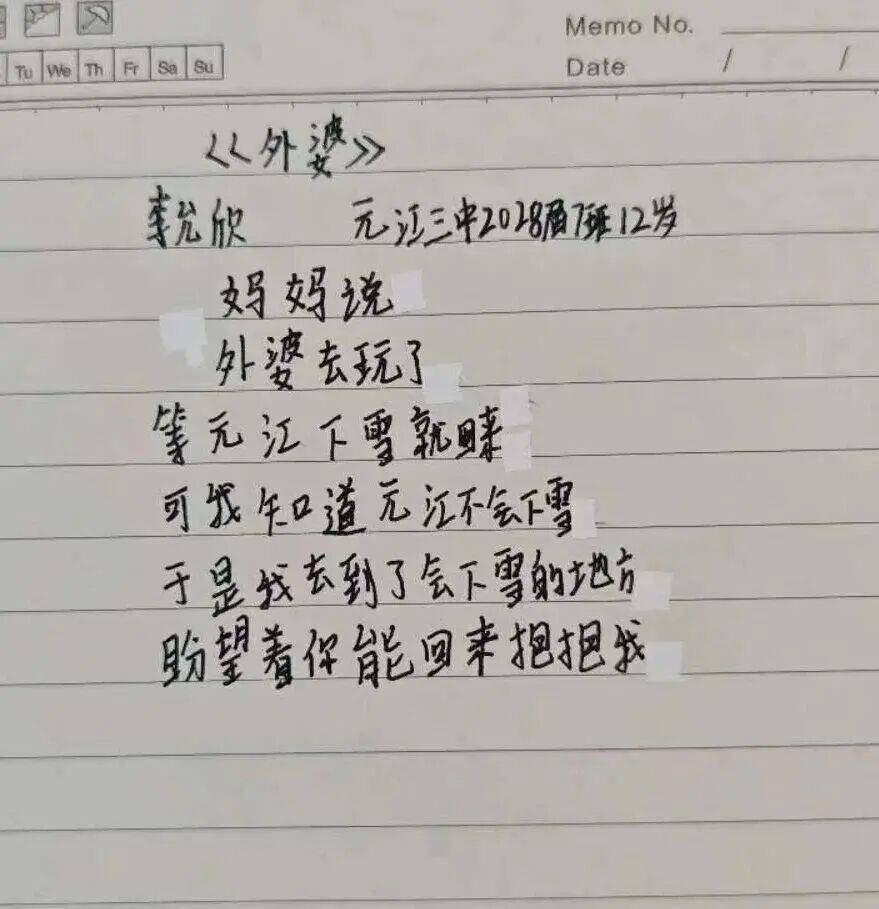 Memo No.
Tu We Th Fr Sa Su
Date / /
《外婆》
李允欣 元江三中2028届7班12岁
妈妈说
外婆去玩了
等元江下雪就回来
可我知道元江不会下雪
于是我去到了会下雪的地方
盼望着你能回来抱抱我